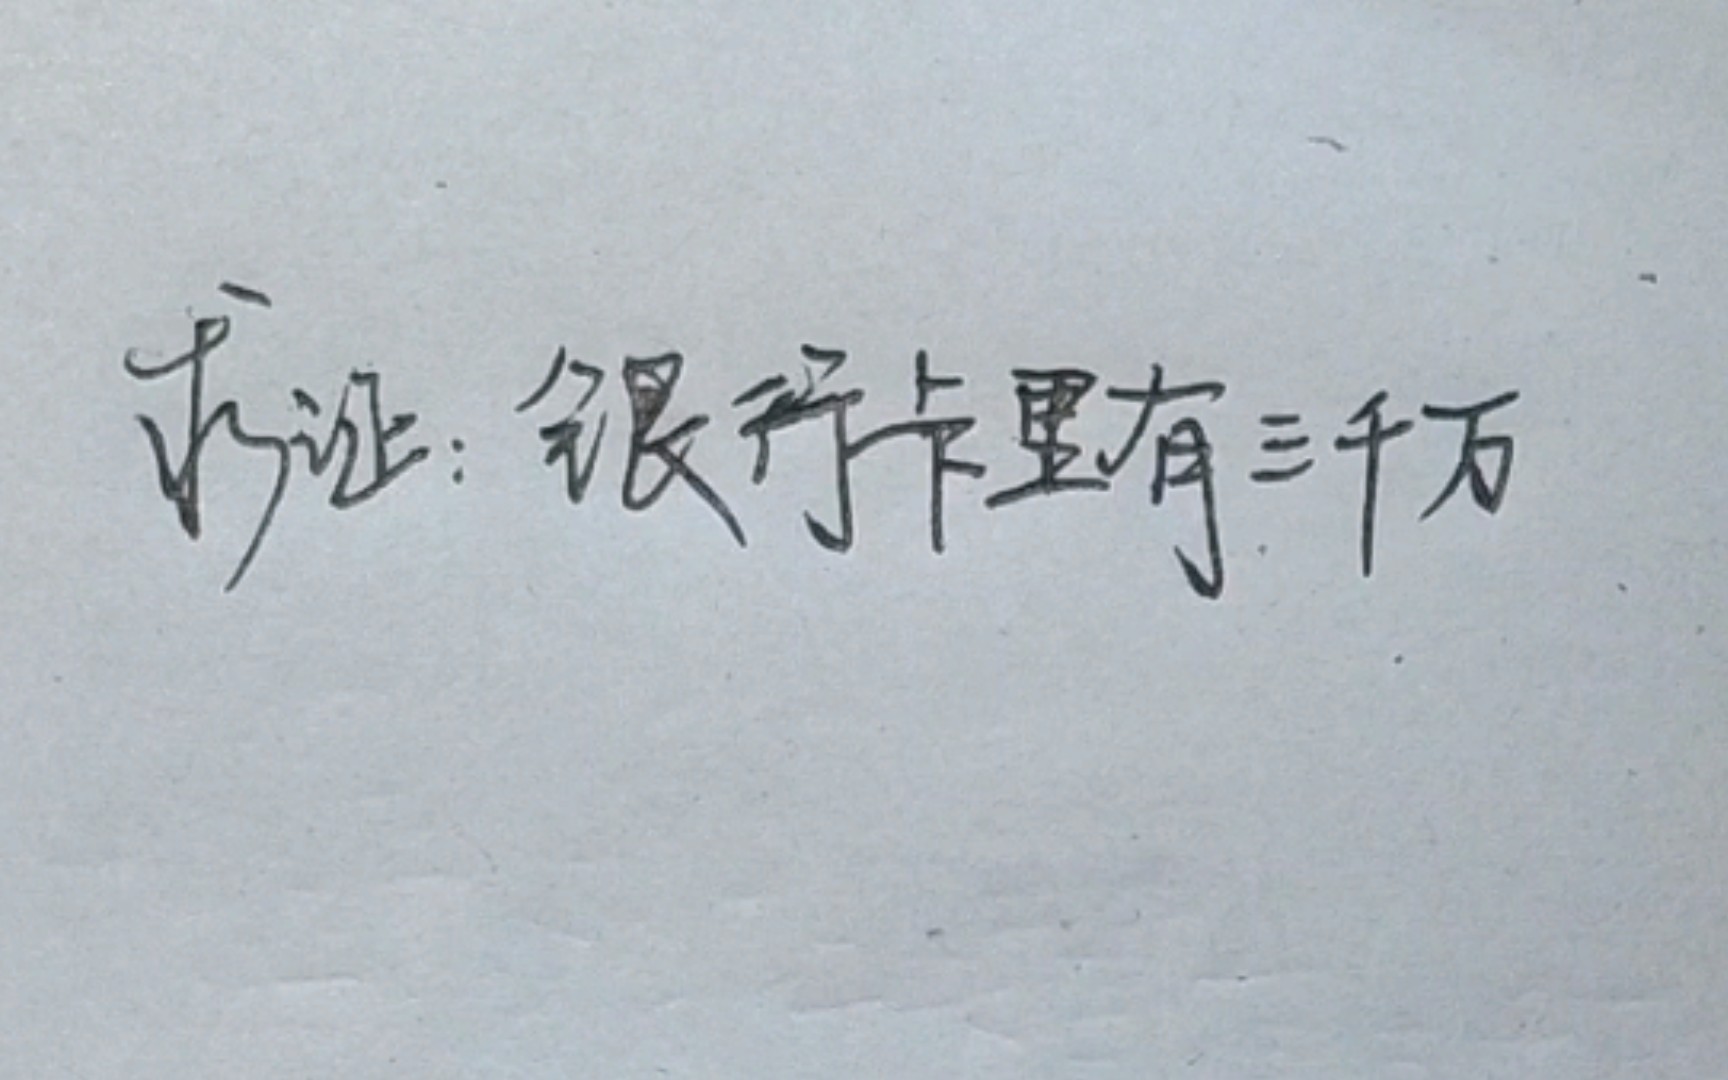 求证：银行卡里有三千万